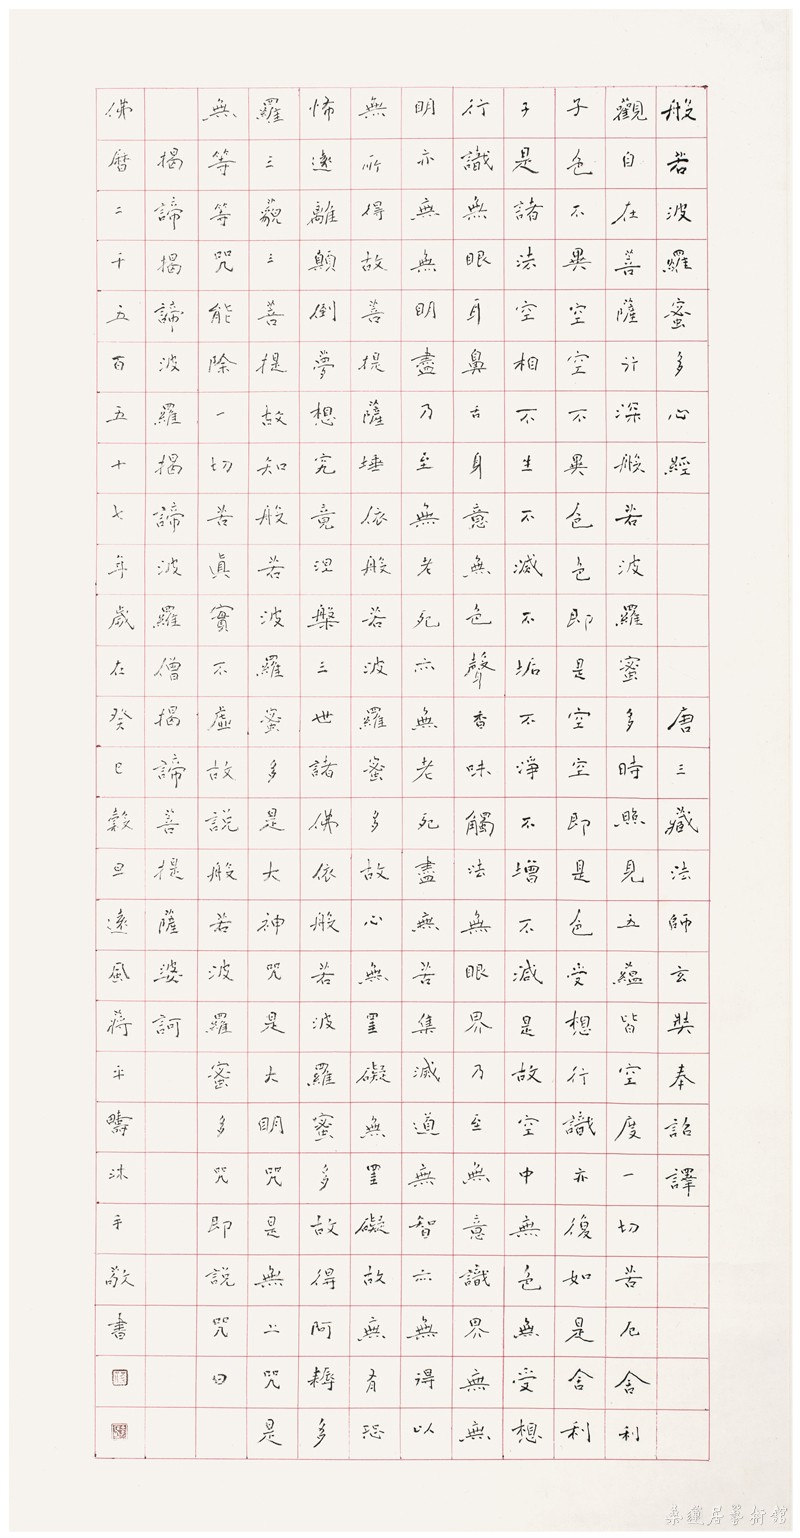 般若波羅蜜多心經 唐三藏法師玄奘奉詔譯
觀自在菩薩行深般若波羅蜜多時照見五蘊皆空度一切苦厄舍利
子色不異空空不異色色即是空空即是色受想行識亦復如是舍利
子是諸法空相不生不滅不垢不淨不增不減是故空中無色無受想
行識無眼耳鼻舌身意無色聲香味觸法無眼界乃至無意識界無無
明亦無無明盡乃至無老死亦無老死盡無苦集滅道無智亦無得以
無所得故菩提薩埵依般若波羅蜜多故心無罣礙無罣礙故無有恐
怖遠離顛倒夢想究竟涅槃三世諸佛依般若波羅蜜多故得阿耨多
羅三藐三菩提故知般若波羅蜜多是大神咒是大明咒是無上咒是
無等等咒能除一切苦真實不虛故說般若波羅蜜多咒即說咒曰
揭諦揭諦波羅揭諦波羅僧揭諦菩提薩婆訶
佛曆二千五百五十七年歲在癸巳穀旦遠風蔣平疇沐手敬書
桑蓮居藝術館